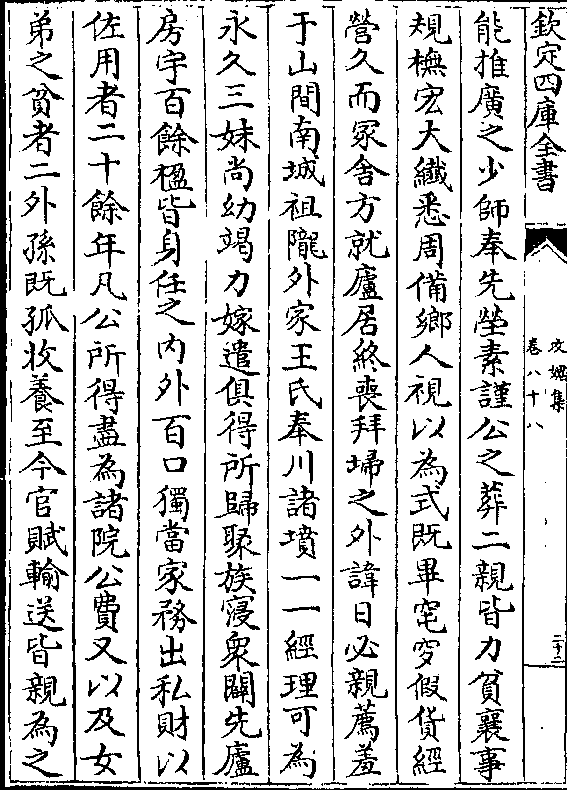 欽定四庫全書
攻媿集
卷八十八
二十二
能推廣之少師奉先塋素謹公之葬二親皆力貧襄事
規橅宏大纎悉周備鄉人視以為式既畢窀穸假貸經
營久而冢舍方就廬居終喪拜埽之外諱日必親薦羞
于山間南城祖隴外家王氏奉川諸墳一一經理可為
永久三妹尚幼竭力嫁遣俱得所歸聚族寖衆闢先廬
房宇百餘楹皆身任之内外百口獨當家務出私財以
佐用者二十餘年凡公所得盡為諸院公費又以及女
弟之貧者二外孫既孤收養至今官賦輸送皆親為之